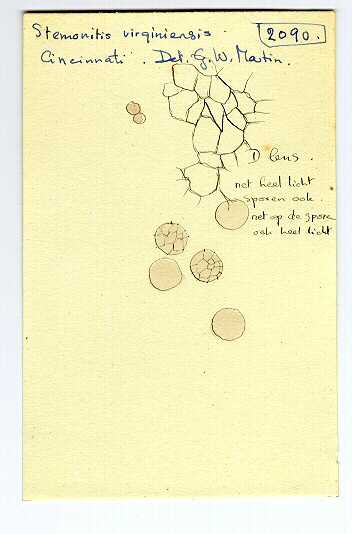 Stemonitis virginiensis. 2090.
Cincinnati. Det. G. W. Martin.
D lens.
net heel licht
sporen ook.
net op de sporen
ook heel licht